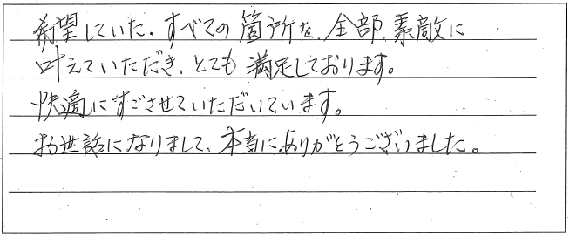 希望していた。すべての箇所を、全部、素敵に
叶えていただき、とても満足しております。
快適にすごさせていただいています。
お世話になりまして、本当にありがとうございました。